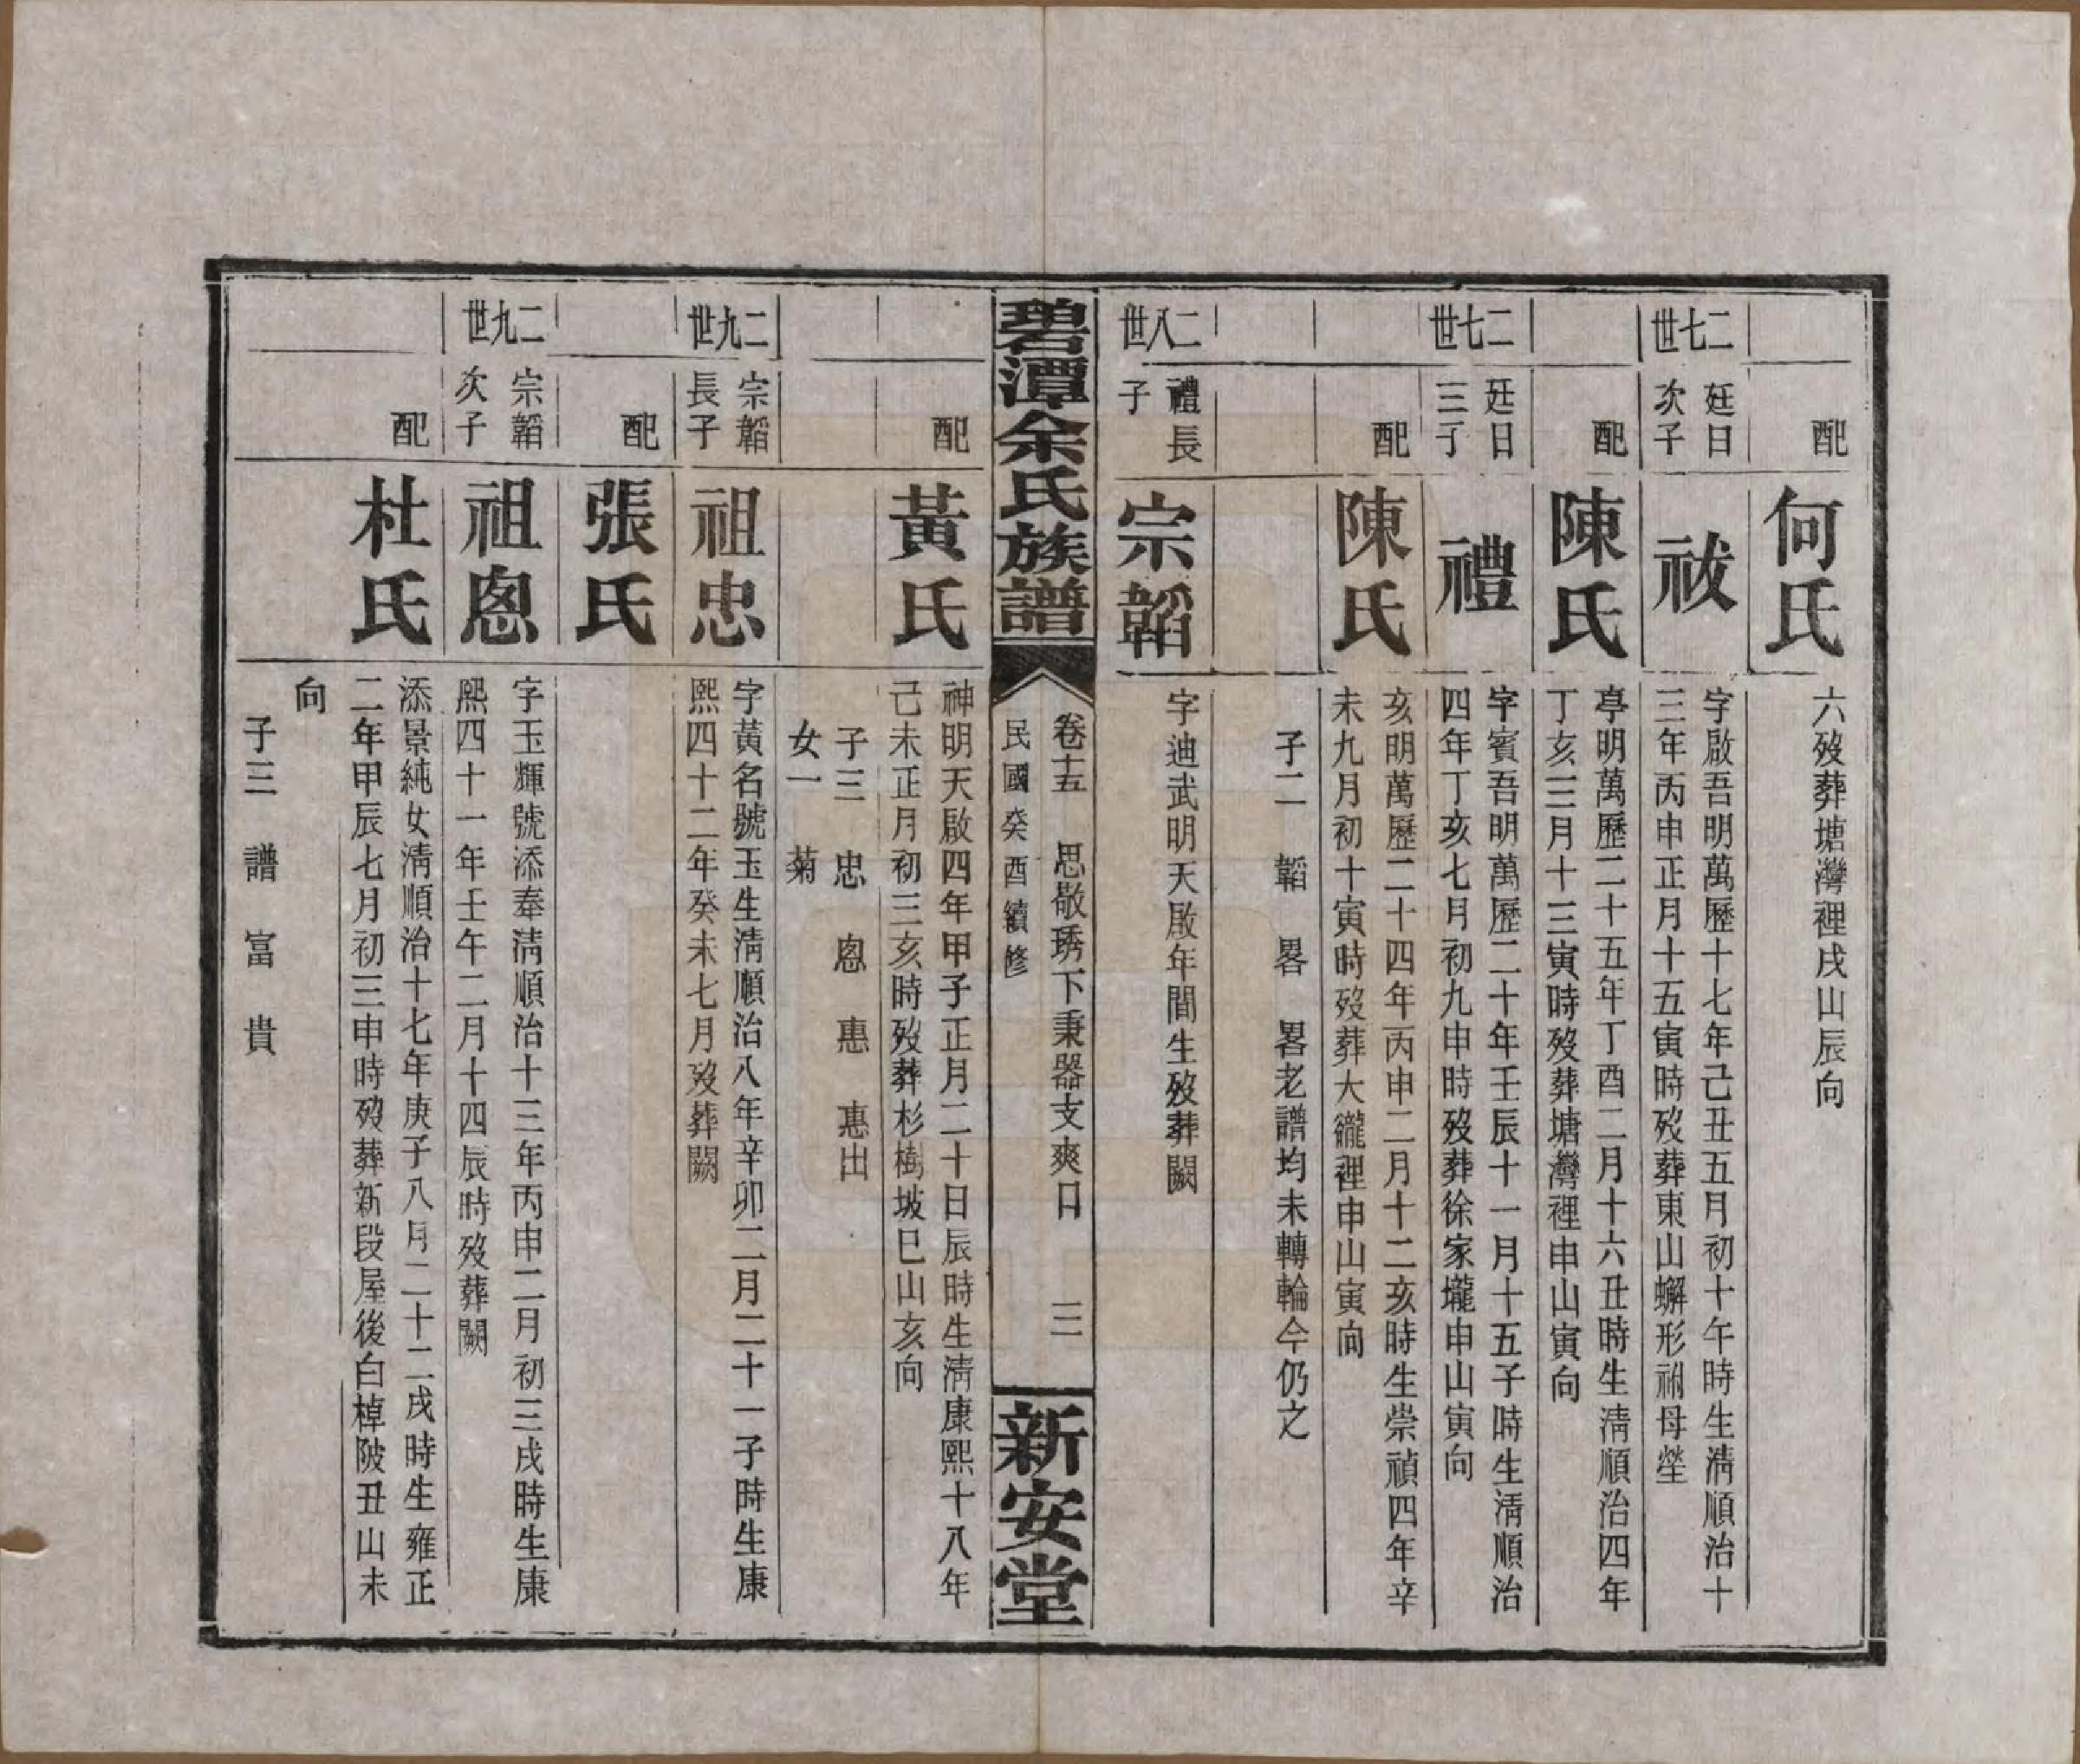 配
何氏
六歿葬塘灣裡戌山辰向
二七世
廷日
次子
祓
字啟吾明萬歷十七年己丑五月初十午時生淸順治十
三年丙申正月十五寅時歿葬東山蠏形祔母塋
配
陳氏
亭明萬歷二十五年丁酉二月十六丑時生淸順治四年
丁亥三月十三寅時歿葬塘灣裡申山寅向
二七世
廷日
三丁
禮
字賓吾明萬歷二十年壬辰十一月十五子時生淸順治
四年丁亥七月初九申時歿葬徐家壠申山寅向
配
陳氏
亥明萬歷二十四年丙申二月十二亥時生崇禎四年辛
未九月初十寅時歿葬大巃裡申山寅向
子二 韜 畧 畧老譜均未轉輪今仍之
二八世
禮長
子
宗韜
字迪武明天啟年間生歿葬闕
碧潭余氏族譜
卷十五 思敬琇下秉器支爽日 三
民國癸酉續修
新安堂
配
黃氏
神明天啟四年甲子正月二十日辰時生淸康熙十八年
己未正月初三亥時歿葬杉樹坡巳山亥向
子三 忠 恩 惠 惠出
女一 菊
二九世
宗韜
長子
祖忠
字黃名號玉生淸順治八年辛卯二月二十一子時生康
熙四十二年癸未七月歿葬闕
配
張氏
二九世
宗韜
次子
祖恩
字玉輝號添奉淸順治十三年丙申二月初三戌時生康
熙四十一年壬午二月十四辰時歿葬闕
配
杜氏
添景純女淸順治十七年庚子八月二十二戌時生雍正
二年甲辰七月初三申時歿葬新段屋後白棹陂丑山未
向
子三 譜 富 貴